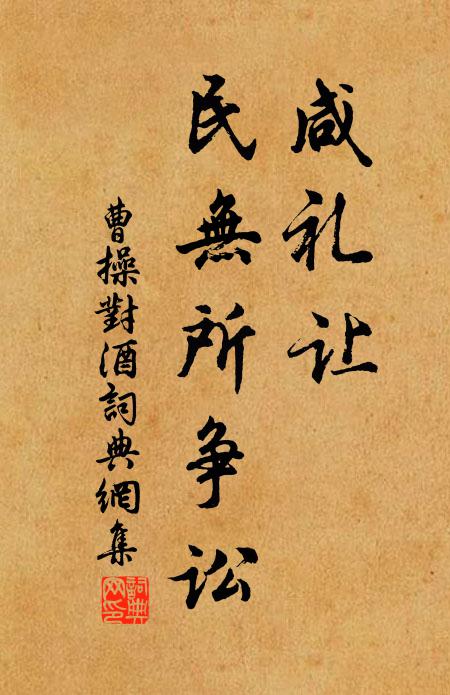 咸礼让
民無所争讼
曹操對酒詞典網集
詞典网印